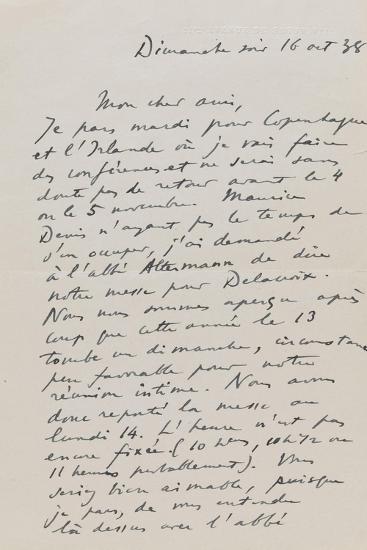 Dimanche soir 16 oct 38
Mon cher ami,
Je pars mardi pour Copenhague
et l'Irlande où je vais faire
des conférences et ne serai sans
doute pas de retour avant le 4
ou le 5 novembre. Maurice
Denis n'ayant pas le temps de
s'en occuper, j'ai demandé
à l'abbé Altermann de dire
notre messe pour Delacroix.
Nous nous sommes aperçus après
coup que cette année le 13
tombe un dimanche, circonstance
peu favorable pour notre
réunion intime. Nous avons
donc reporté la messe au
lundi 14. L'heure n'est pas
encore fixée (10 heures, 10h 1/2 ou
11 heures probablement). Vous
seriez bien aimable, puisque
je pars, de vous entendre
là dessus avec l'abbé